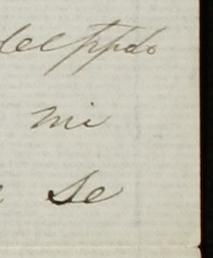 del ppdo
mi
se